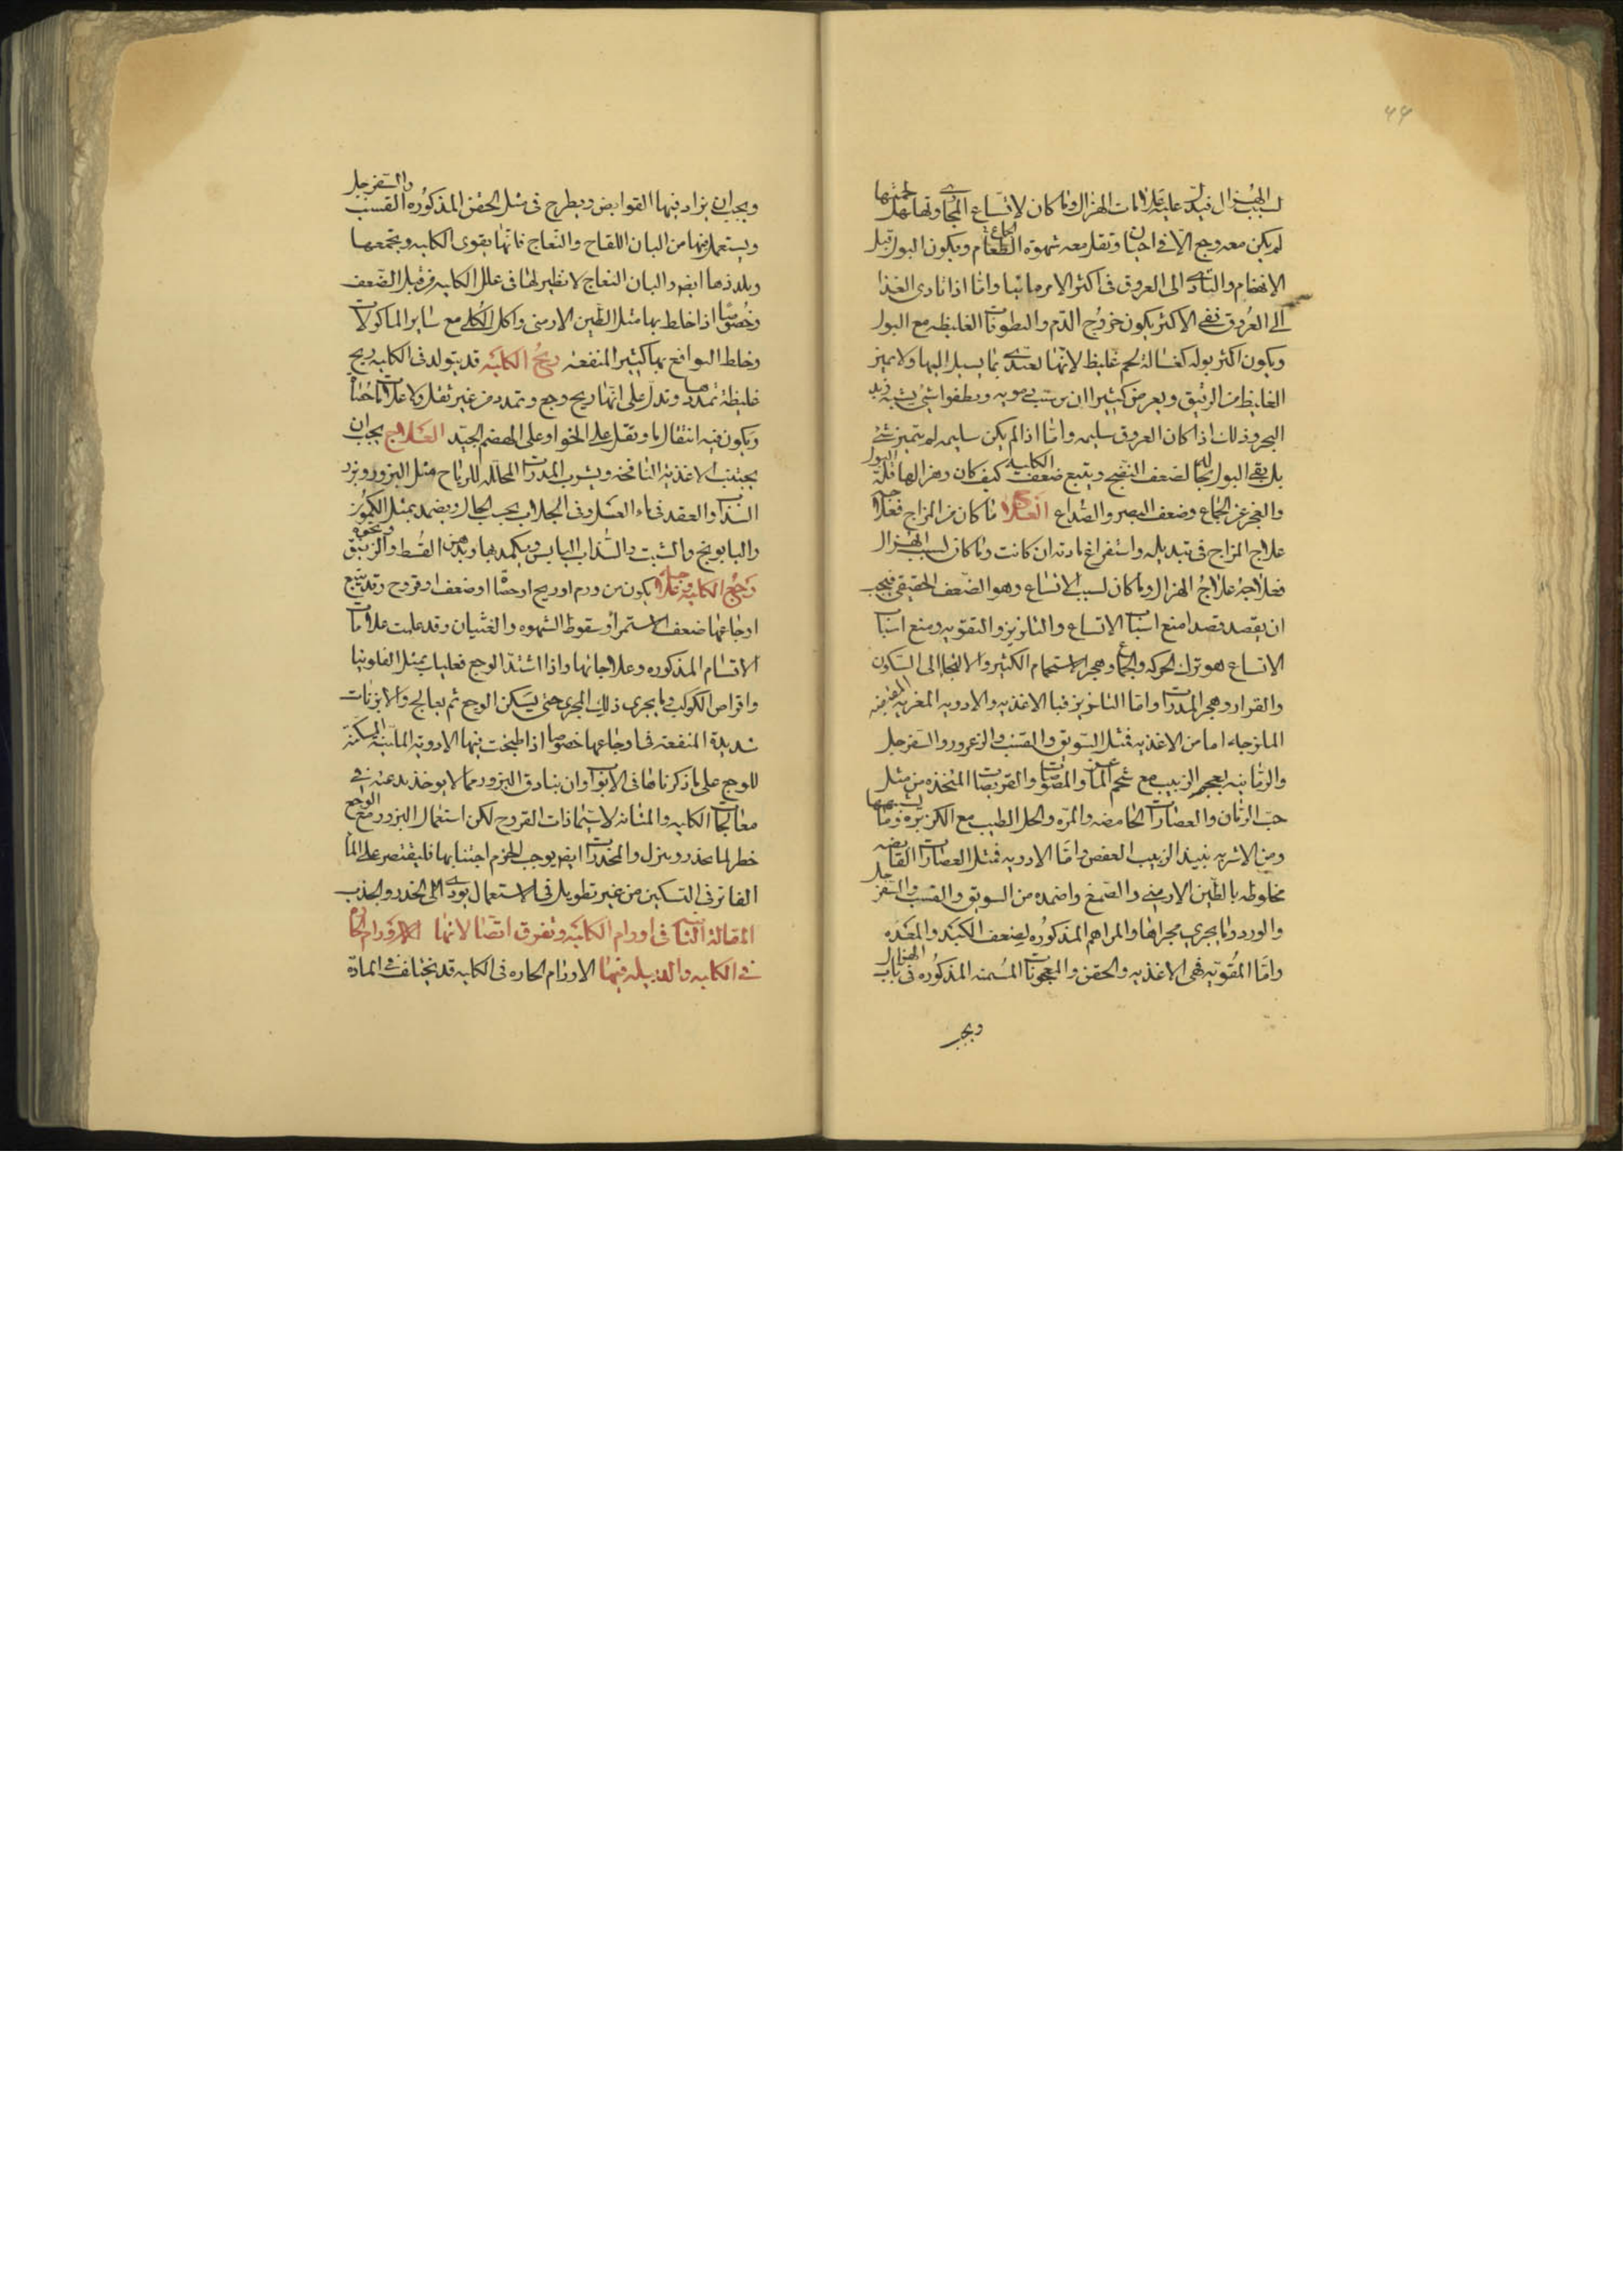 ۴۴
لسبب الهزال فيدل عليه علامات الهزال وما كان لاتساع المجاري وتهلهل لحمتها
لم يكن معه وجع الا في احيان وتقل معه شهوة الطعام ويكون البول قبل
الانهضام والتادي الى العروق في اكثر الامر مائيا واما اذا تادى الغذا
الى العروق ففي الاكثر يكون خروج الدم والرطوبات الغليظه مع البول
ويكون اكثر بوله كغسالة لحم غليظ لانها لا يميز
الغليظ من الرقيق ويعرض كثيرا ان يرسب دمويه ويطفو شي يشبه زبد
البحر وذلك اذا كان العروق سليمه واما اذا لم يكن سليمه لم يتميز شي
بل بقي البول بحاله لضعف النضج ويتبع ضعف الكليه كيف كان وهزالها قلة البول
والعجز عن الجماع وضعف البصر والصداع العلاج ما كان من المزاج فعلاجه
علاج المزاج في تبديله واستفراغ مادته ان كانت وما كان لسبب الهزال
فعلاجه علاج الهزال وما كان لسبب الاتساع وهو الضعف الحقيقي فيجب
ان يقصد قصد منع اسباب الاتساع والتلزيز والتقويه ومنع اسباب
الاتساع هو ترك الحركه والجماع وهجر الاستحمام الكثير والالتجا الى السكون
والقرار وهجر المدرات واما التلزيز فبالاغذيه والادويه المغريه القابضه
الملزجه اما من الاغذيه فمثل السويق والقسب والزعرور والسفرجل
والرمانيه بعجم الزبيب مع شحم الماعز والمصوصات والقريصات المتخذه من مثل
حب الرمان والعصارات الحامضه والمره والخل الطيب مع الكزبرة وما يشبهها
ومن الاشربه نبيذ الزبيب العفص واما الادويه فمثل العصارات القابضه
مخلوطه بالطين الارمني والصمغ واضمده من السويق والقسب والسفرجل
والورد وما يجري مجراها والمراهم المذكوره لضعف الكبد والمعده
واما المقويه فهي الاغذيه والحقن والمعجونات المسمنه المذكوره في باب الهزال
ويجب
ويجب ان يزاد فيها القوابض ويطرح في مثل الحقن المذكوره القسب والسفرجل
ويستعمل فيها من البان اللقاح والنعاج فانها يقوى الكليه ويجمعها
ويلززها ايض والبان النعاج لا نظير لها في علل الكليه من قبل الضعف
وخصوصا اذا خلط بها مثل الطين الارمني واكل الكلى مع ساير الماكولات
وخلط النوافع بها كثير المنفعه ريح الكليه قد يتولد في الكليه ريح
غليظة تمددها وتدل على انها ريح وجع وتمدد من غير ثقل ولا علامات حصاة
ويكون فيه انتقال ما وتقل على الخوا وعلى الهضم الجيد العلاج يجب ان
يجتنب الاغذيه النافخه ويشرب المدرات المحلله للرياح مثل البزور وبزر
السذاب والفقد في ماء العسل وفي الجلاب بحسب الحال ويضمد بمثل الكمون
والبابونج والشبت والسذاب اليابس ويكمد بها ويدهن القسط والزنبق ونحوه
وجع الكليه وعلاجه يكون من ورم او ريح او حصاة او ضعف او قروح وقد يتبع
اوجاعها ضعف الاستمرا وسقوط الشهوه والغثيان وقد علمت علامات
الاقسام المذكوره وعلاجاتها واذا اشتد الوجع فعليك بمثل الفلونيا
واقراص الكوكب وما يجري ذلك المجرى حتى يسكن الوجع ثم يعالج والابزنات
شديدة المنفعه في اوجاعها خصوصا اذا طبخت فيها الادوية الملينه المسكنة
للوجع على ما ذكرناها في الابواب وان بنادق البزور مما لا يوخذ بدعنه في
معالجات الكليه والمثانه لاسيما ذات القروح لكن استعمال البزور مع الوجع
خطر لما يحدر وينزل والمخدرات ايض يوجب الحزم اجتنابها فليقتصر على الما
الفاتر في التسكين من غير تطويل في الاستعمال يودي الى الخدر والجذب
المقالة الثانيه في اورام الكليه وتفرق اتصالاتها الاورام الحاره
في الكليه والدبيله فيها الاورام الحاره في الكليه قد يختلف في المادة